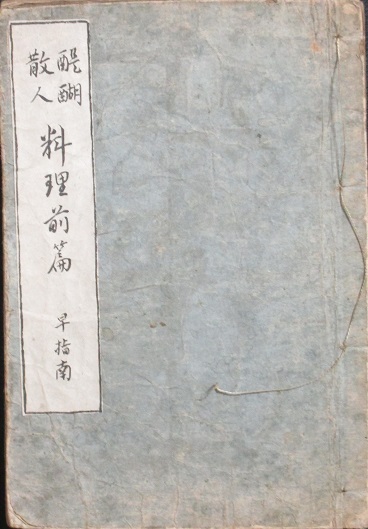 醍醐
散人
料理前篇
早指南